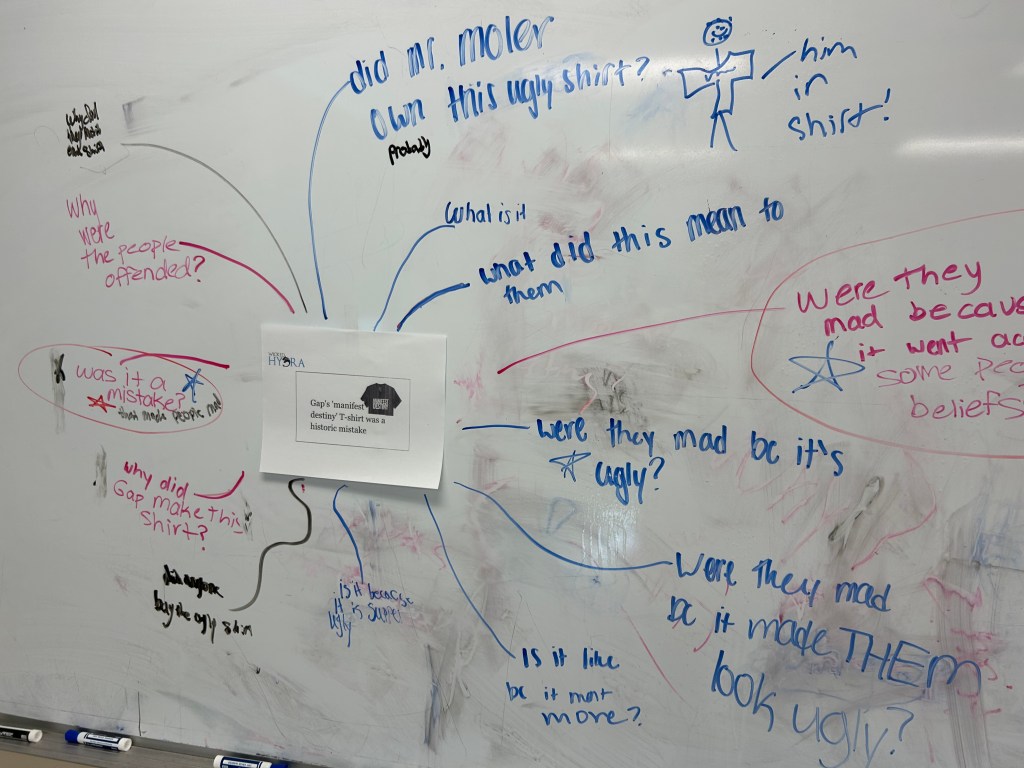 did Mr. moler
own this ugly shirt?
probably
him
in
shirt!
why did
they make
that shirt
Why
were
the people
offended?
What is it
what did this mean to
them
Were they
mad because
it went
some
beliefs
was it a
mistake?
that made people mad
HYDRA
Gap's 'manifest
destiny' T-shirt was a
historic mistake
were they mad bc it's
ugly?
why did
Gap make this
shirt?
did anyone
buy the ugly shirt
is it because
it is super
ugly
Were they mad
bc it made THEM
look ugly?
Is it like
bc it
more?